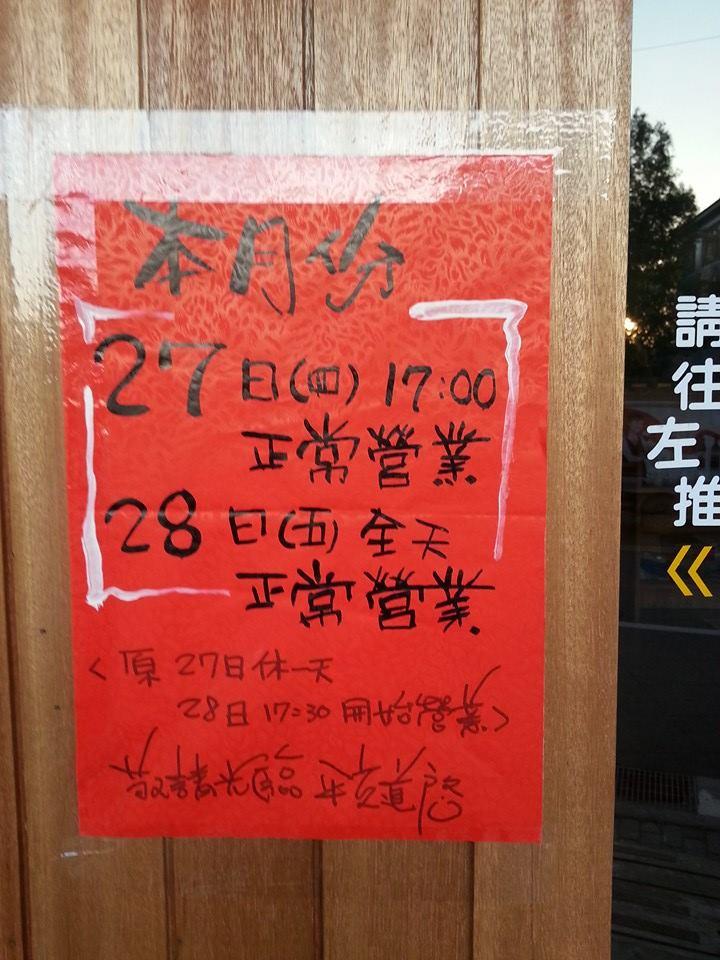 本月份
27日(四) 17:00
正常營業
28日(五)全天
正常營業
〈原 27日休一天
28日 17:30 開始營業〉
請往左推
《